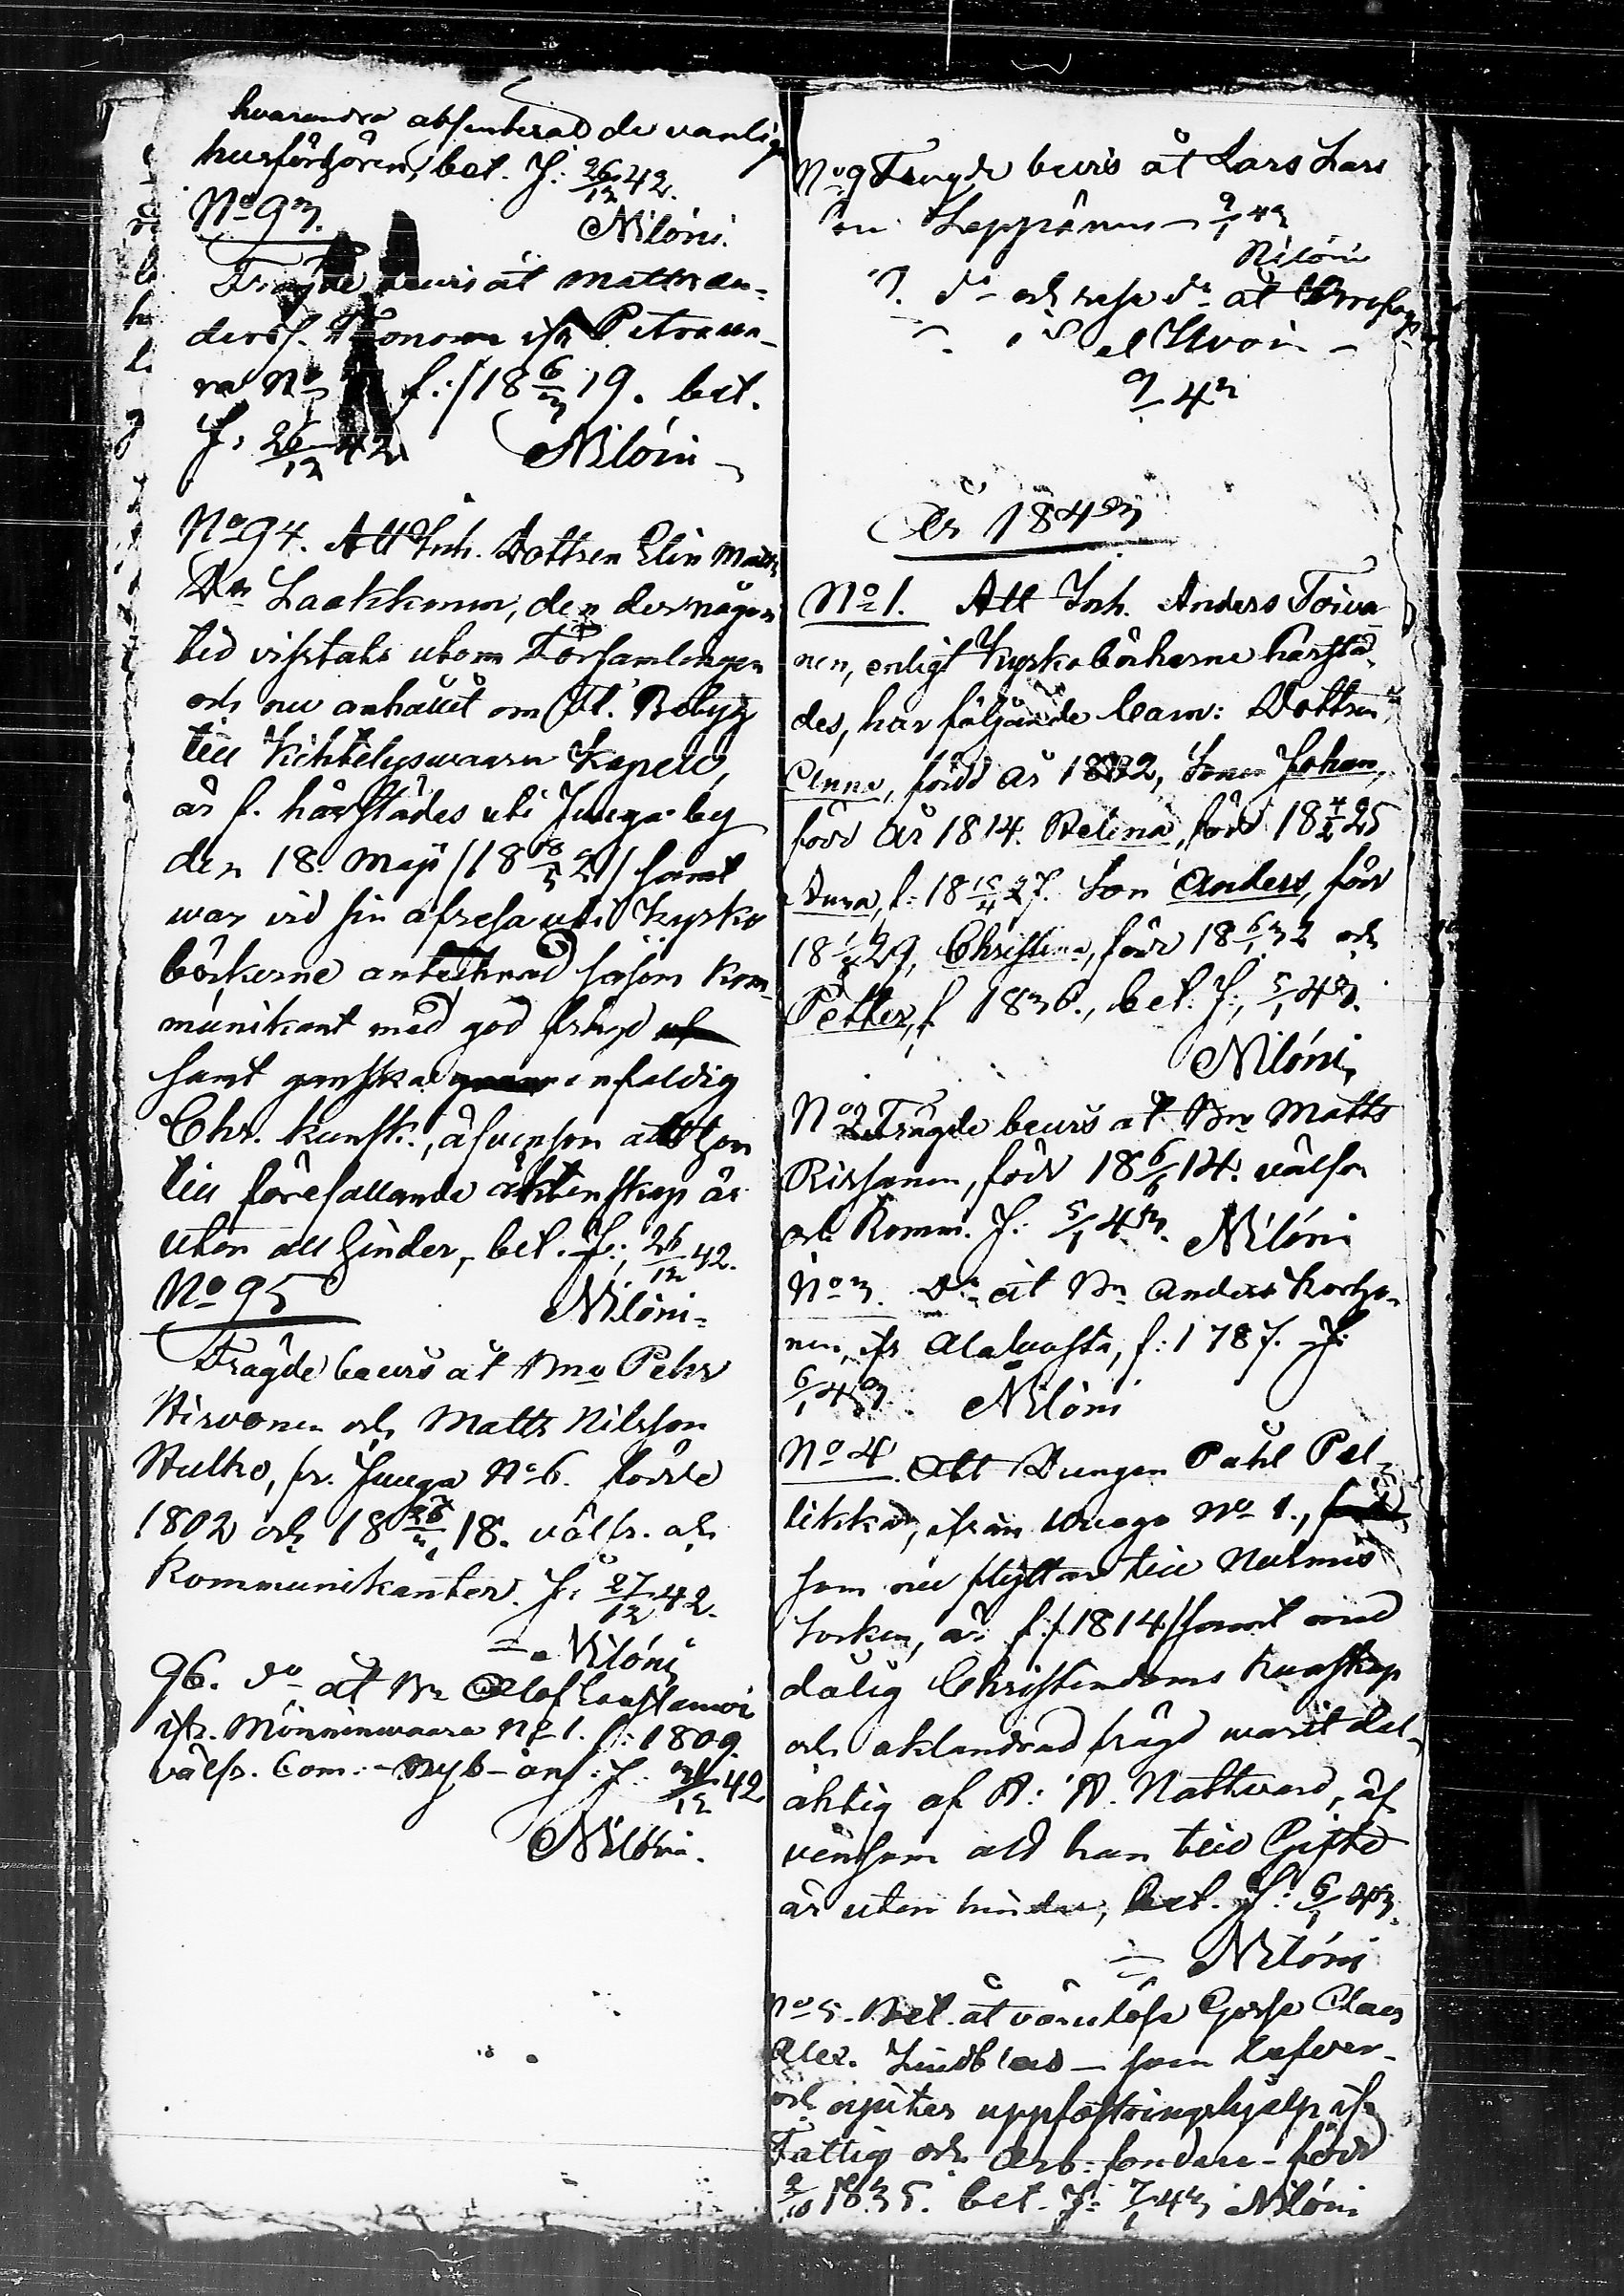 hvarandra absenterad de vanlige
husförhören, bet. J: 26/12 42.
No 93. Nilóni.
Frägde bevis åt Matts An-
derss. ifr Petrava-
ra No f:/18 6/3 19. bet.
J: 26/12 42 Nilóni
No 94. Att Inh. Dottren Elin Matts
Dr Laakkonen, den der någon
tid vistats utom Församlingen
och nu anhållit om Fl. Betyg
till Kihtelysvaara Kapell,
är f. härstädes uti Juuga by
den 18 Maji /18 18/5 21/ samt
war vid sin afresa uti Kyrko
böckerne antecknad såsom kom-
munikant med god frägd
samt ganska enfaldig
Chr. kunsk., äfvensom att hon
till förefallande äktenskap är
utan all hinder, bet. J: 26/12 42.
No 95 Nilóni
Frägde bevis åt Bne Pehr
Hirvonen och Matts Nilsson
Hulko, fr. Juuga No 6. födde
1802 och 18 18. välfr. och
Kommunikanter. J: 27/12 42.
Nilóni
96. do åt Bn Olof
ifr. Mönninvaara No 1. f: 1809.
välfr. Com: - Nyb - anf: J: 31/12 42
Nilóni.
No 9 Frägde bevis åt Lars Lars
son Leppänen 9/1 43
Nilóni
do och resp do åt
9/1 43
År 1843
No 1. Att Inh. Anders Toiva-
nen, enligt Kyrkoböckerne härstä-
des, har följande barn: Dottren
Anna, född år 1812, Sonen Johan,
född År 1814. Helena, född 18 4/2 25
f: 18 15/4 27. Son Anders, född
18 29, Christina, född 18 6/1 32 och
Petter, f 1836., bet: J:, 5/1 43.
Nilóni
No 2 Frägde bevis åt Bn Matts
Rissanen, född 18 6/6 14. välfr
och Komm. J: 5/1 43. Nilóni
No 3. Do åt Bn Anders Korho-
nen, ifr Alaluosta, f: 1787. J:
6/1 43 Nilóni
No 4 Att Drengen Påhl Pel-
likka, ifrån Juuga No 1.,
som nu flyttar till Nurmis
Socken, är f:/1814/ samt med
dålig Christendoms Kunskap
och oklandrad frägd warit del-
aktig af H: H. Nattvard, äf-
vensom att han till Gifte
är utan hinder, bet. J: 6/1 43.
Nilóni
No 5. Bet. åt värnlöse Gosse Claes
Alex. Lindblad - som lefver
och njuter uppfostringshjelp ifr
Fattig och Arb: fonden - född
2/10 1835. bet. J: 7/1 43 Nilóni